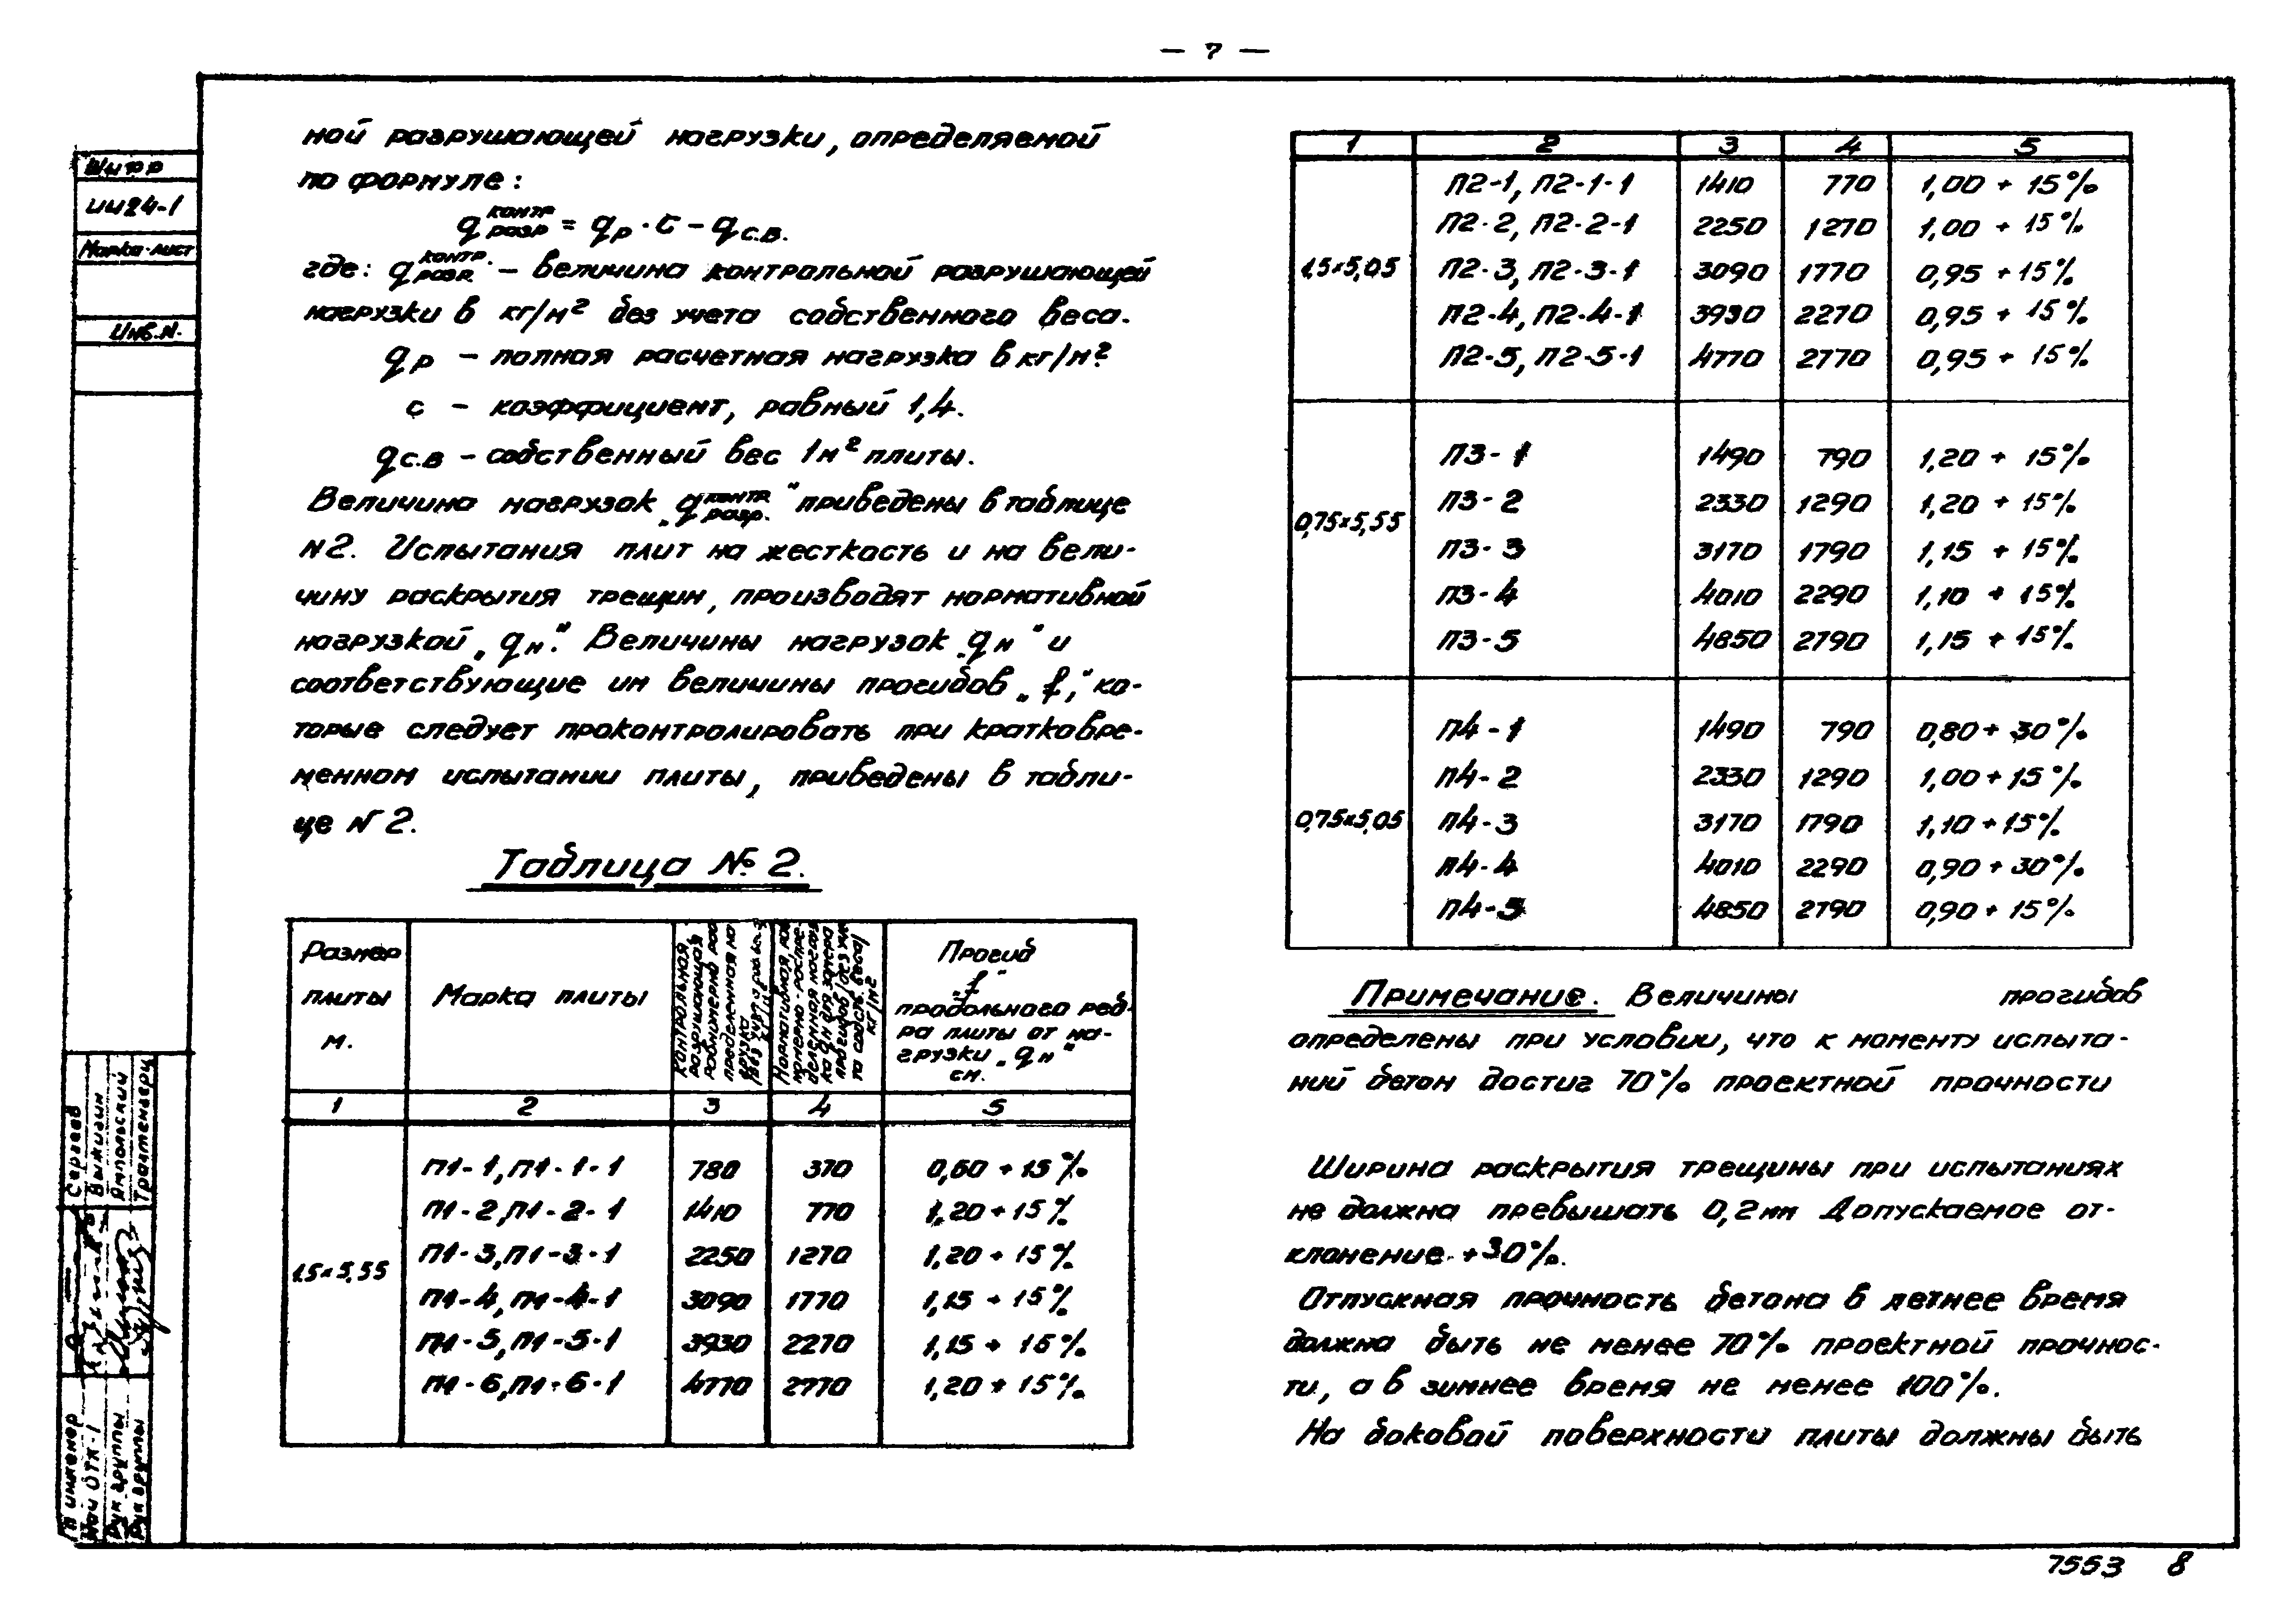 — 7 —
Шифр
ИИ24-1
Марка-лист
Инв.N.
ной разрушающей нагрузки, определяемой
по формуле:
q контр разр = qр · c – qс.в.
где: q контр. разр. – величина контрольной разрушающей
нагрузки в кг/м² без учета собственного веса.
qр – полная расчетная нагрузка в кг/м²
с – коэффициент, равный 1,4.
qс.в – собственный вес 1м² плиты.
Величина нагрузок „q контр разр.“ приведены в таблице
N2. Испытания плит на жесткость и на вели-
чину раскрытия трещин, производят нормативной
нагрузкой „qн“. Величины нагрузок „qн“ и
соответствующие им величины прогибов „f“, ко-
торые следует проконтролировать при кратковре-
менном испытании плиты, приведены в табли-
це N2.
Таблица № 2.
Размер плиты м. | Марка плиты | Контрольная разрушающая равномерно рас пределенная на грузка | Нормативная рав номерно-распре- деленная нагруз ка qн для замера прогибов /без уче та собств. веса/ кг/м2 | Прогиб „f“ продольного реб- ра плиты от на- грузки „qн“ см.
1 | 2 | 3 | 4 | 5
1,5×5,55
П1-1, П1-1-1 | 780 | 370 | 0,60 + 15%
П1-2, П1-2-1 | 1410 | 770 | 1,20 + 15%
П1-3, П1-3-1 | 2250 | 1270 | 1,20 + 15%
П1-4, П1-4-1 | 3090 | 1770 | 1,15 + 15%
П1-5, П1-5-1 | 3930 | 2270 | 1,15 + 15%
П1-6, П1-6-1 | 4770 | 2770 | 1,20 + 15%
1 | 2 | 3 | 4 | 5
1,5×5,05
П2-1, П2-1-1 | 1410 | 770 | 1,00 + 15%
П2-2, П2-2-1 | 2250 | 1270 | 1,00 + 15%
П2-3, П2-3-1 | 3090 | 1770 | 0,95 + 15%
П2-4, П2-4-1 | 3930 | 2270 | 0,95 + 15%
П2-5, П2-5-1 | 4770 | 2770 | 0,95 + 15%
0,75×5,55
П3-1 | 1490 | 790 | 1,20 + 15%
П3-2 | 2330 | 1290 | 1,20 + 15%
П3-3 | 3170 | 1790 | 1,15 + 15%
П3-4 | 4010 | 2290 | 1,10 + 15%
П3-5 | 4850 | 2790 | 1,15 + 15%
0,75×5,05
П4-1 | 1490 | 790 | 0,80 + 30%
П4-2 | 2330 | 1290 | 1,00 + 15%
П4-3 | 3170 | 1790 | 1,10 + 15%
П4-4 | 4010 | 2290 | 0,90 + 30%
П4-5 | 4850 | 2790 | 0,90 + 15%
Примечание. Величины прогибов
определены при условии, что к моменту испыта-
ний бетон достиг 70% проектной прочности
Ширина раскрытия трещины при испытаниях
не должна превышать 0,2мм Допускаемое от-
клонение +30%.
Отпускная прочность бетона в летнее время
должна быть не менее 70% проектной прочнос-
ти, а в зимнее время не менее 100%.
На боковой поверхности плиты должны быть
Гл инженер Сергеев
Нач ОТК-1 Выжигин
Рук группы Ямпольский
Рук группы
7553 8